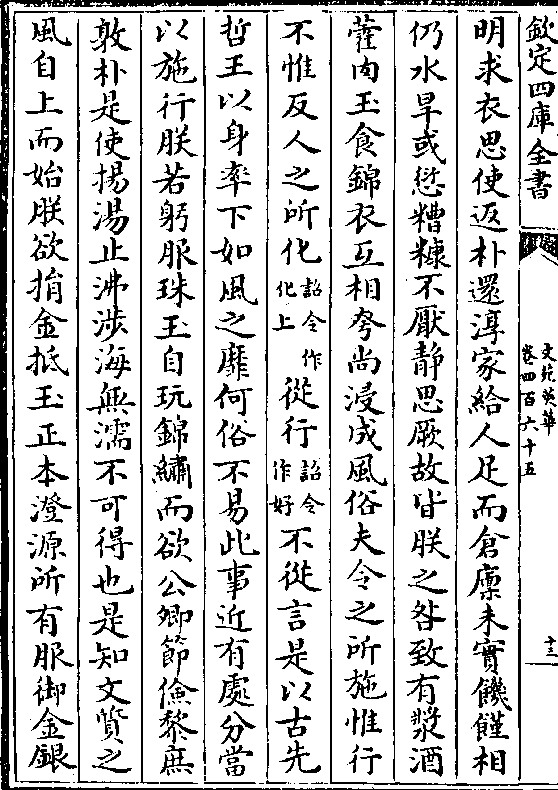 欽定四庫全書
文苑英華
卷四百六十五
十三
明求衣思使返朴還淳家給人足而倉廩未實饑饉相
仍水旱或愆糟糠不厭静思厥故皆朕之咎致有漿酒
藿肉玉食錦衣互相夸尚浸成風俗夫令之所施惟行
不惟反人之所化詔令作化上從行詔令作好不從言是以古先
哲王以身率下如風之靡何俗不易此事近有處分當
以施行朕若躬服珠玉自玩錦繡而欲公卿節儉黎庶
敦朴是使揚湯止沸涉海無濡不可得也是知文質之
風自上而始朕欲捐金抵玉正本澄源所有服御金銀